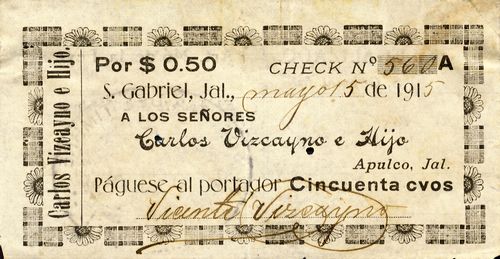 Carlos Vizcayno e Hijo.
Por $ 0.50 CHECK Nº 560 A
S. Gabriel, Jal., mayo 15 de 1915
A LOS SEÑORES
Carlos Vizcayno e Hijo
Apulco, Jal.
Páguese al portador Cincuenta cvos
Vicente Vizcayno